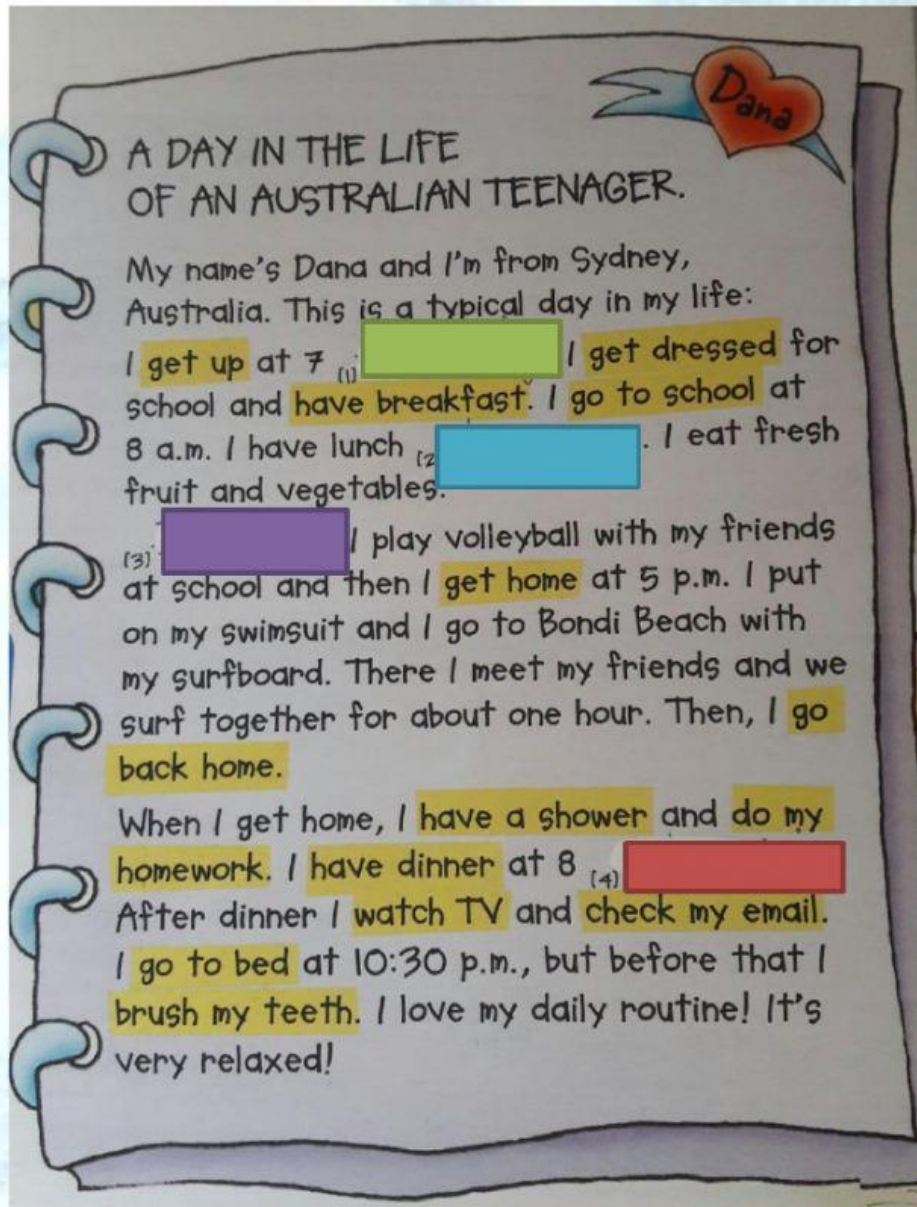 Dana
A DAY IN THE LIFE
OF AN AUSTRALIAN TEENAGER.
My name's Dana and I'm from Sydney,
Australia. This is a typical day in my life:
I get up at 7 (1) I get dressed for
school and have breakfast. I go to school at
8 a.m. I have lunch (2 . I eat fresh
fruit and vegetables.
(3) I play volleyball with my friends
at school and then I get home at 5 p.m. I put
on my swimsuit and I go to Bondi Beach with
my surfboard. There I meet my friends and we
surf together for about one hour. Then, I go
back home.
When I get home, I have a shower and do my
homework. I have dinner at 8 (4)
After dinner I watch TV and check my email.
I go to bed at 10:30 p.m., but before that I
brush my teeth. I love my daily routine! It's
very relaxed!